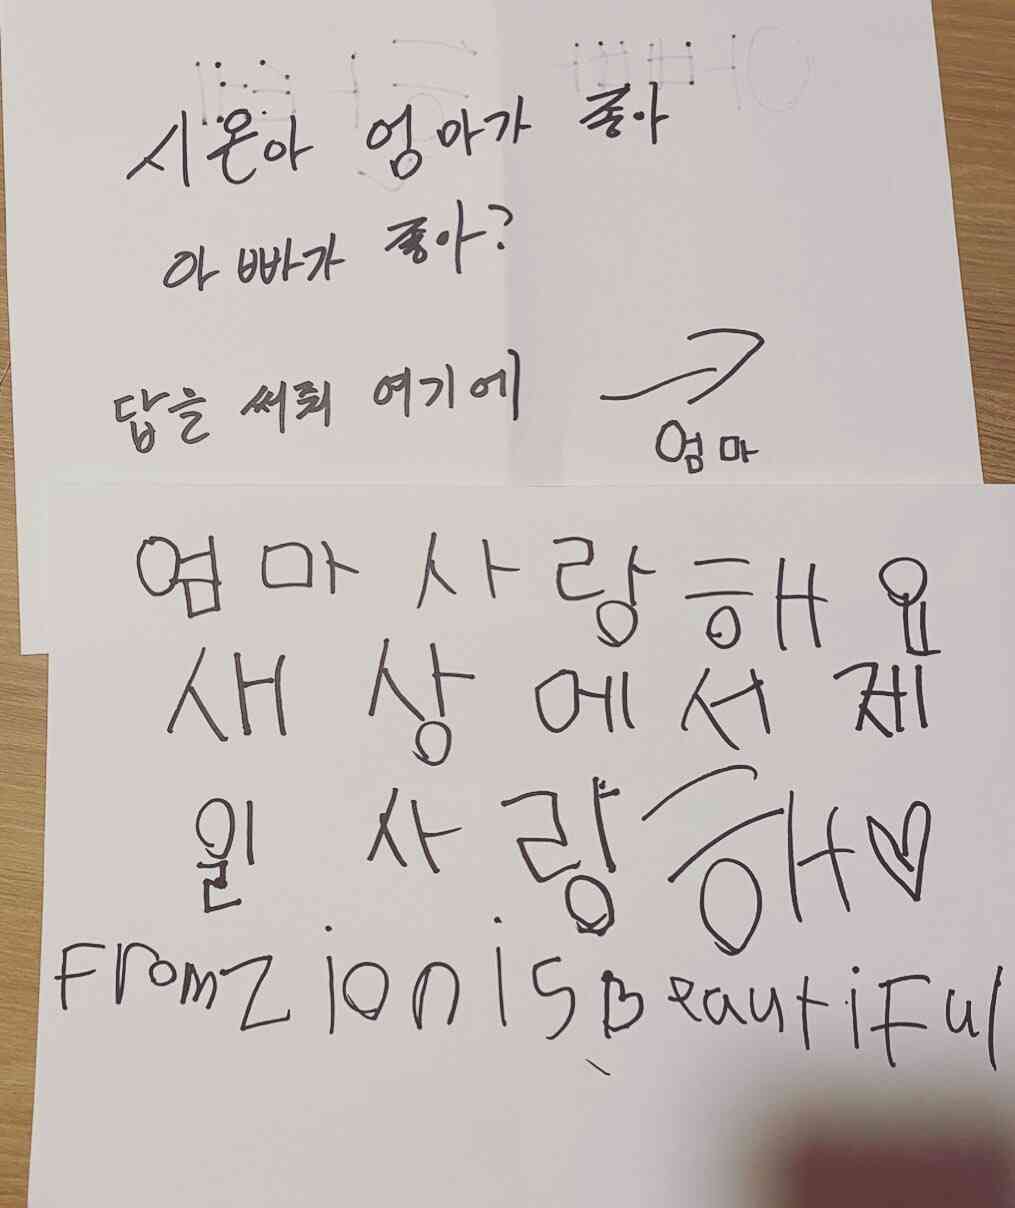 시온아 엄마가 좋아
아빠가 좋아?
답을 써줘 여기에
엄마
엄마 사랑해요
새상에서 제
일 사랑해♡
From Zion is Beautiful